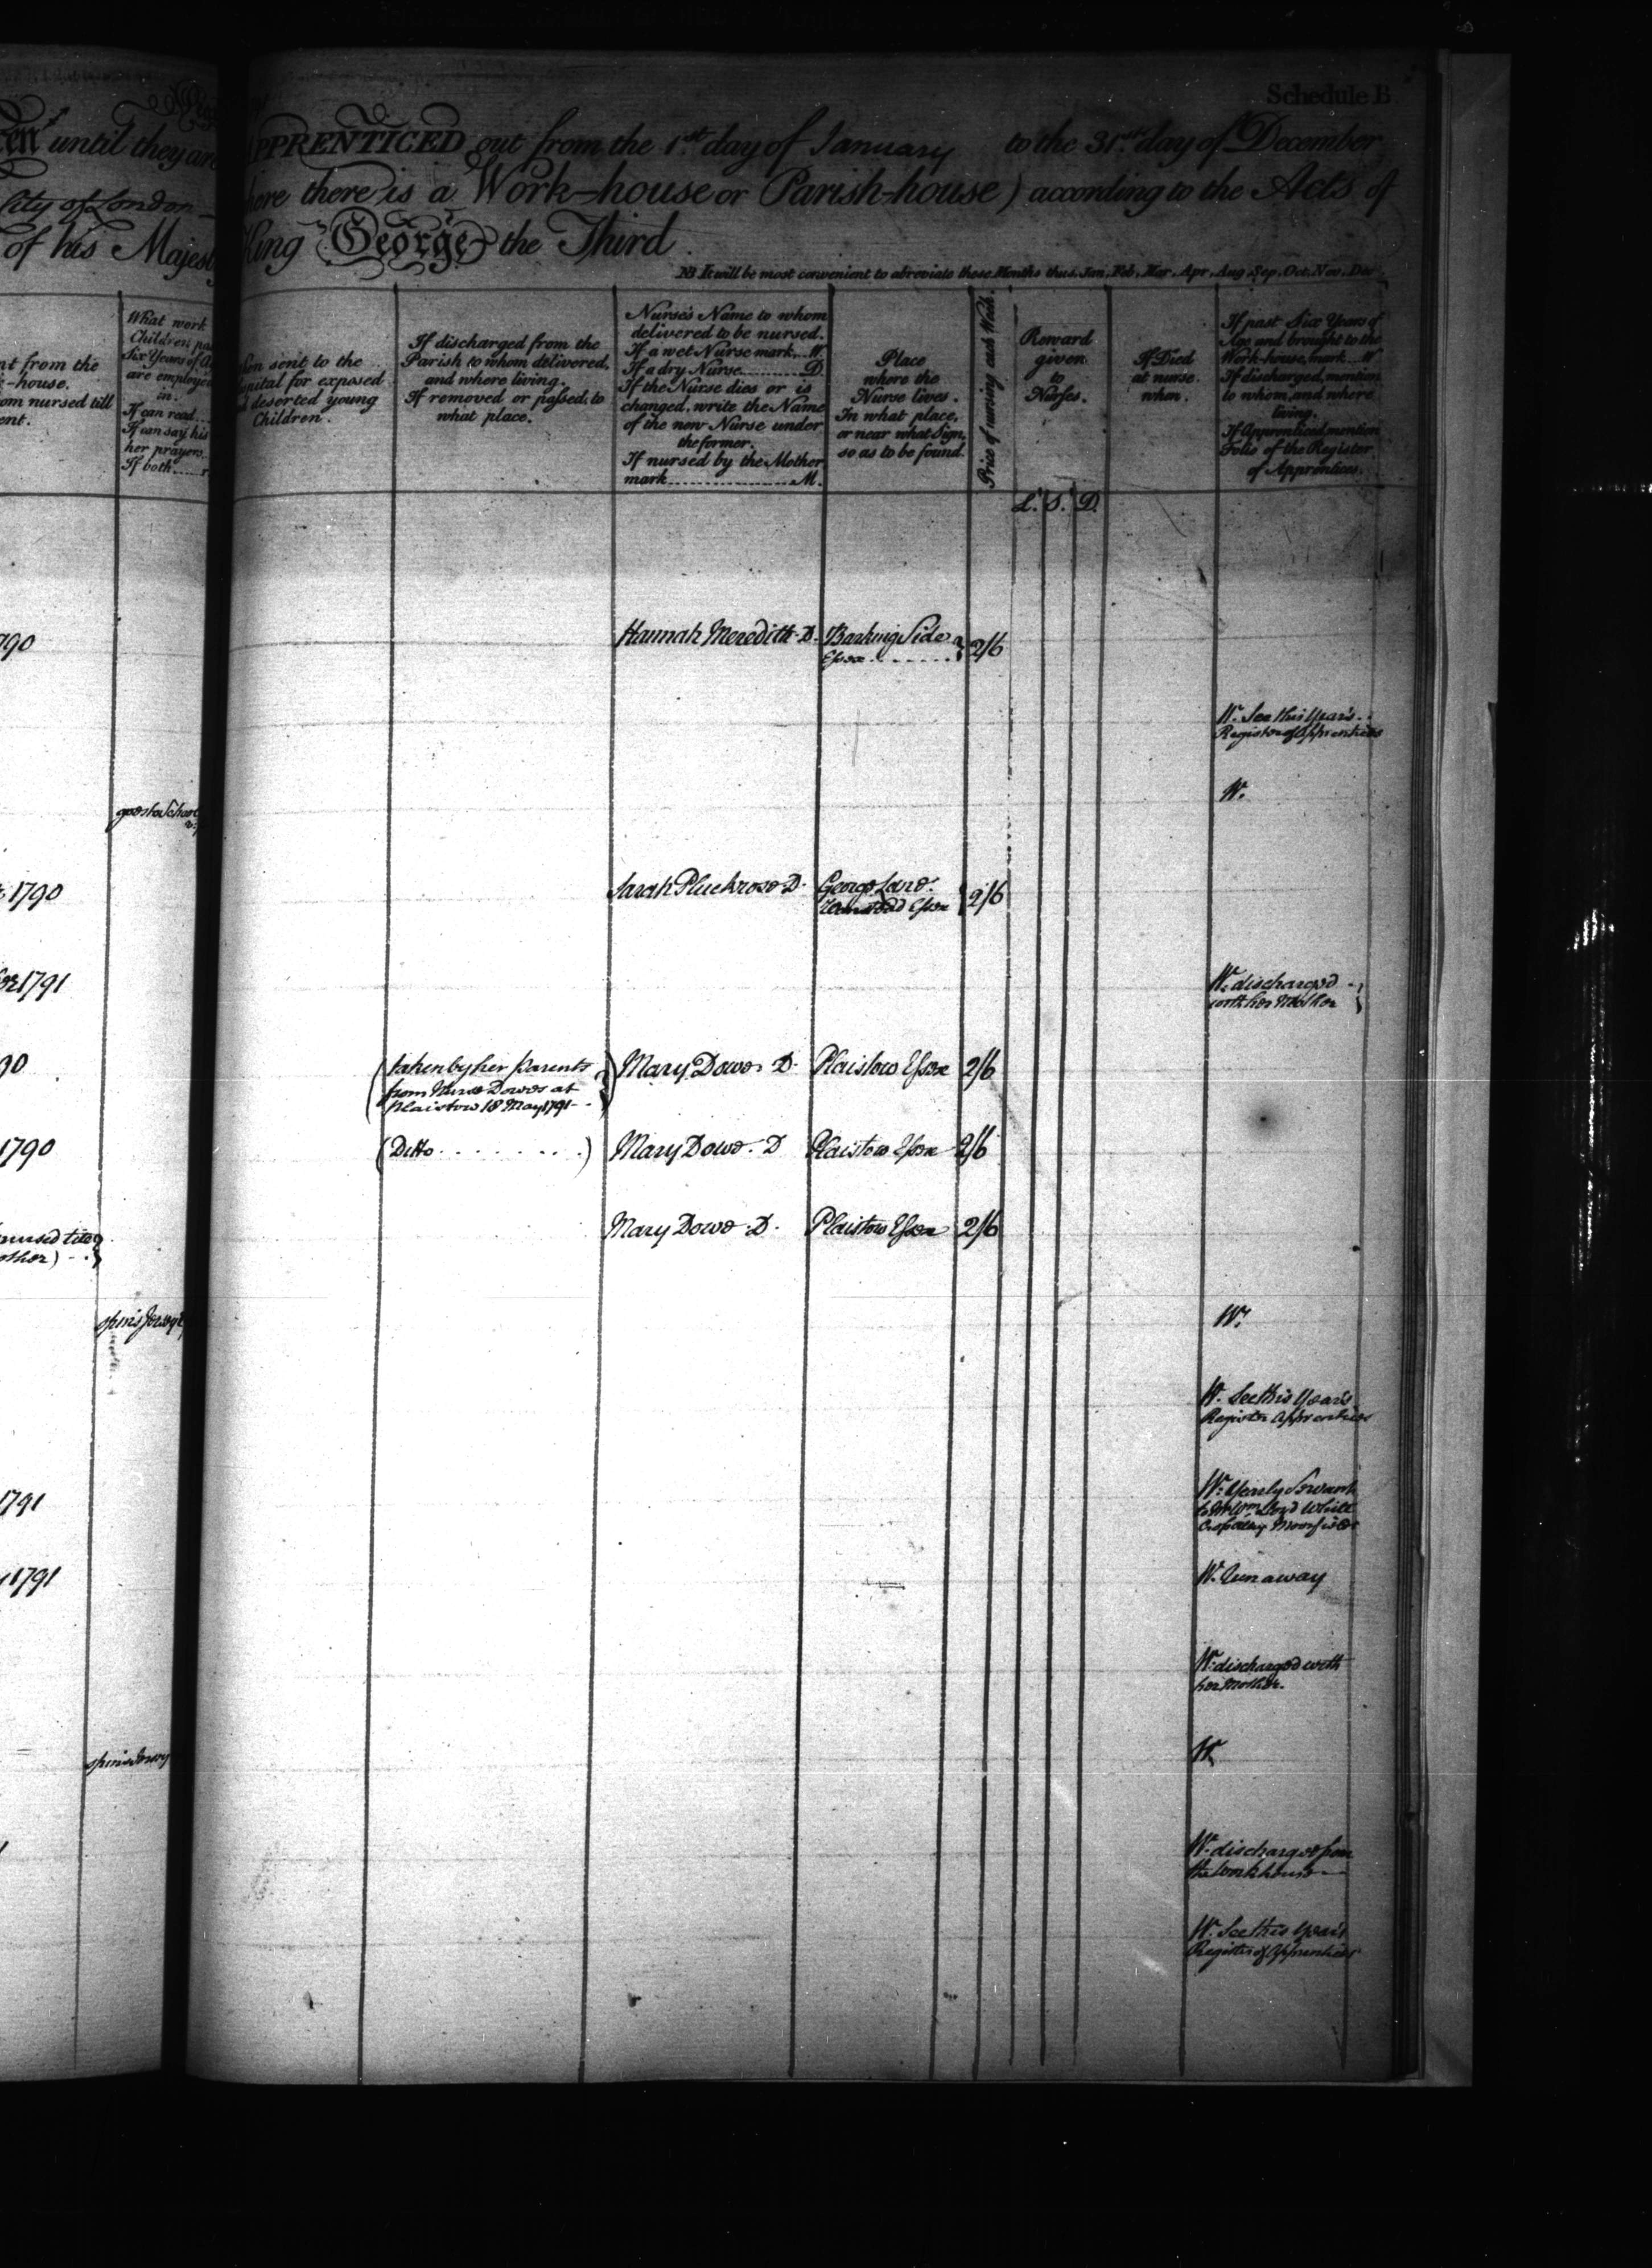 Schedule B
until they are
APPRENTICED out from the 1st day of January to the 31st day of December
City of London
here there is a Work-house or Parish-house) according to the Acts of
of his Majesty
King George the Third
NB It will be most convenient to abreviate these Months thus. Jan, Feb, Mar, Apr, Aug, Sep, Oct, Nov, Dec
nt from the
-house.
om nursed till
ent.
What work
Children pa
Six Years of A
are employed
in.
If can read
If can say his
her prayers
If both
en sent to the
ospital for exposed
d deserted young
Children.
If discharged from the
Parish to whom delivered,
and where living.
If removed or passed, to
what place.
Nurse's Name to whom
delivered to be nursed.
If a wet Nurse mark...W.
If a dry Nurse...D.
If the Nurse dies or is
changed, write the Name
of the new Nurse under
the former.
If nursed by the Mother
mark...M.
Place
where the
Nurse lives.
In what place,
or near what Sign,
so as to be found.
Price of nursing each Week.
Reward
given
to
Nurses.
If Died
at nurse
when.
If past Six Years of
Age and brought to the
Work-house, mark...W
If discharged, mention
to whom, and where
living.
If Apprenticed mention
Folio of the Register
of Apprentices.
L. S. D.
790
Hannah Meredith D. Barking Side 2/6
Essex
W. See this Year's
Register of Apprentices
W.
goes to School
1790
Sarah Pluckrose D. George Lane 2/6
Essex
1791
W. discharged
with her Mother
90
(taken by her Parents Mary Dowe D. Plaistow Essex 2/6
from Nurse Dowes at
Plaistow 18 May 1791
1790
(Ditto . . . . . . . .) Mary Dowe D Plaistow Essex 2/6
nursed
other)
Mary Dowe D. Plaistow Essex 2/6
spins
W.
W. See this Year's
Register Apprentices
1791
W. Yearly Servant
to Mr Wm Lloyd White
1791
W. Run away
W. discharged with
her Mother.
spins
W
W. discharged from
the Workhouse
W. See this Year's
Register of Apprentices